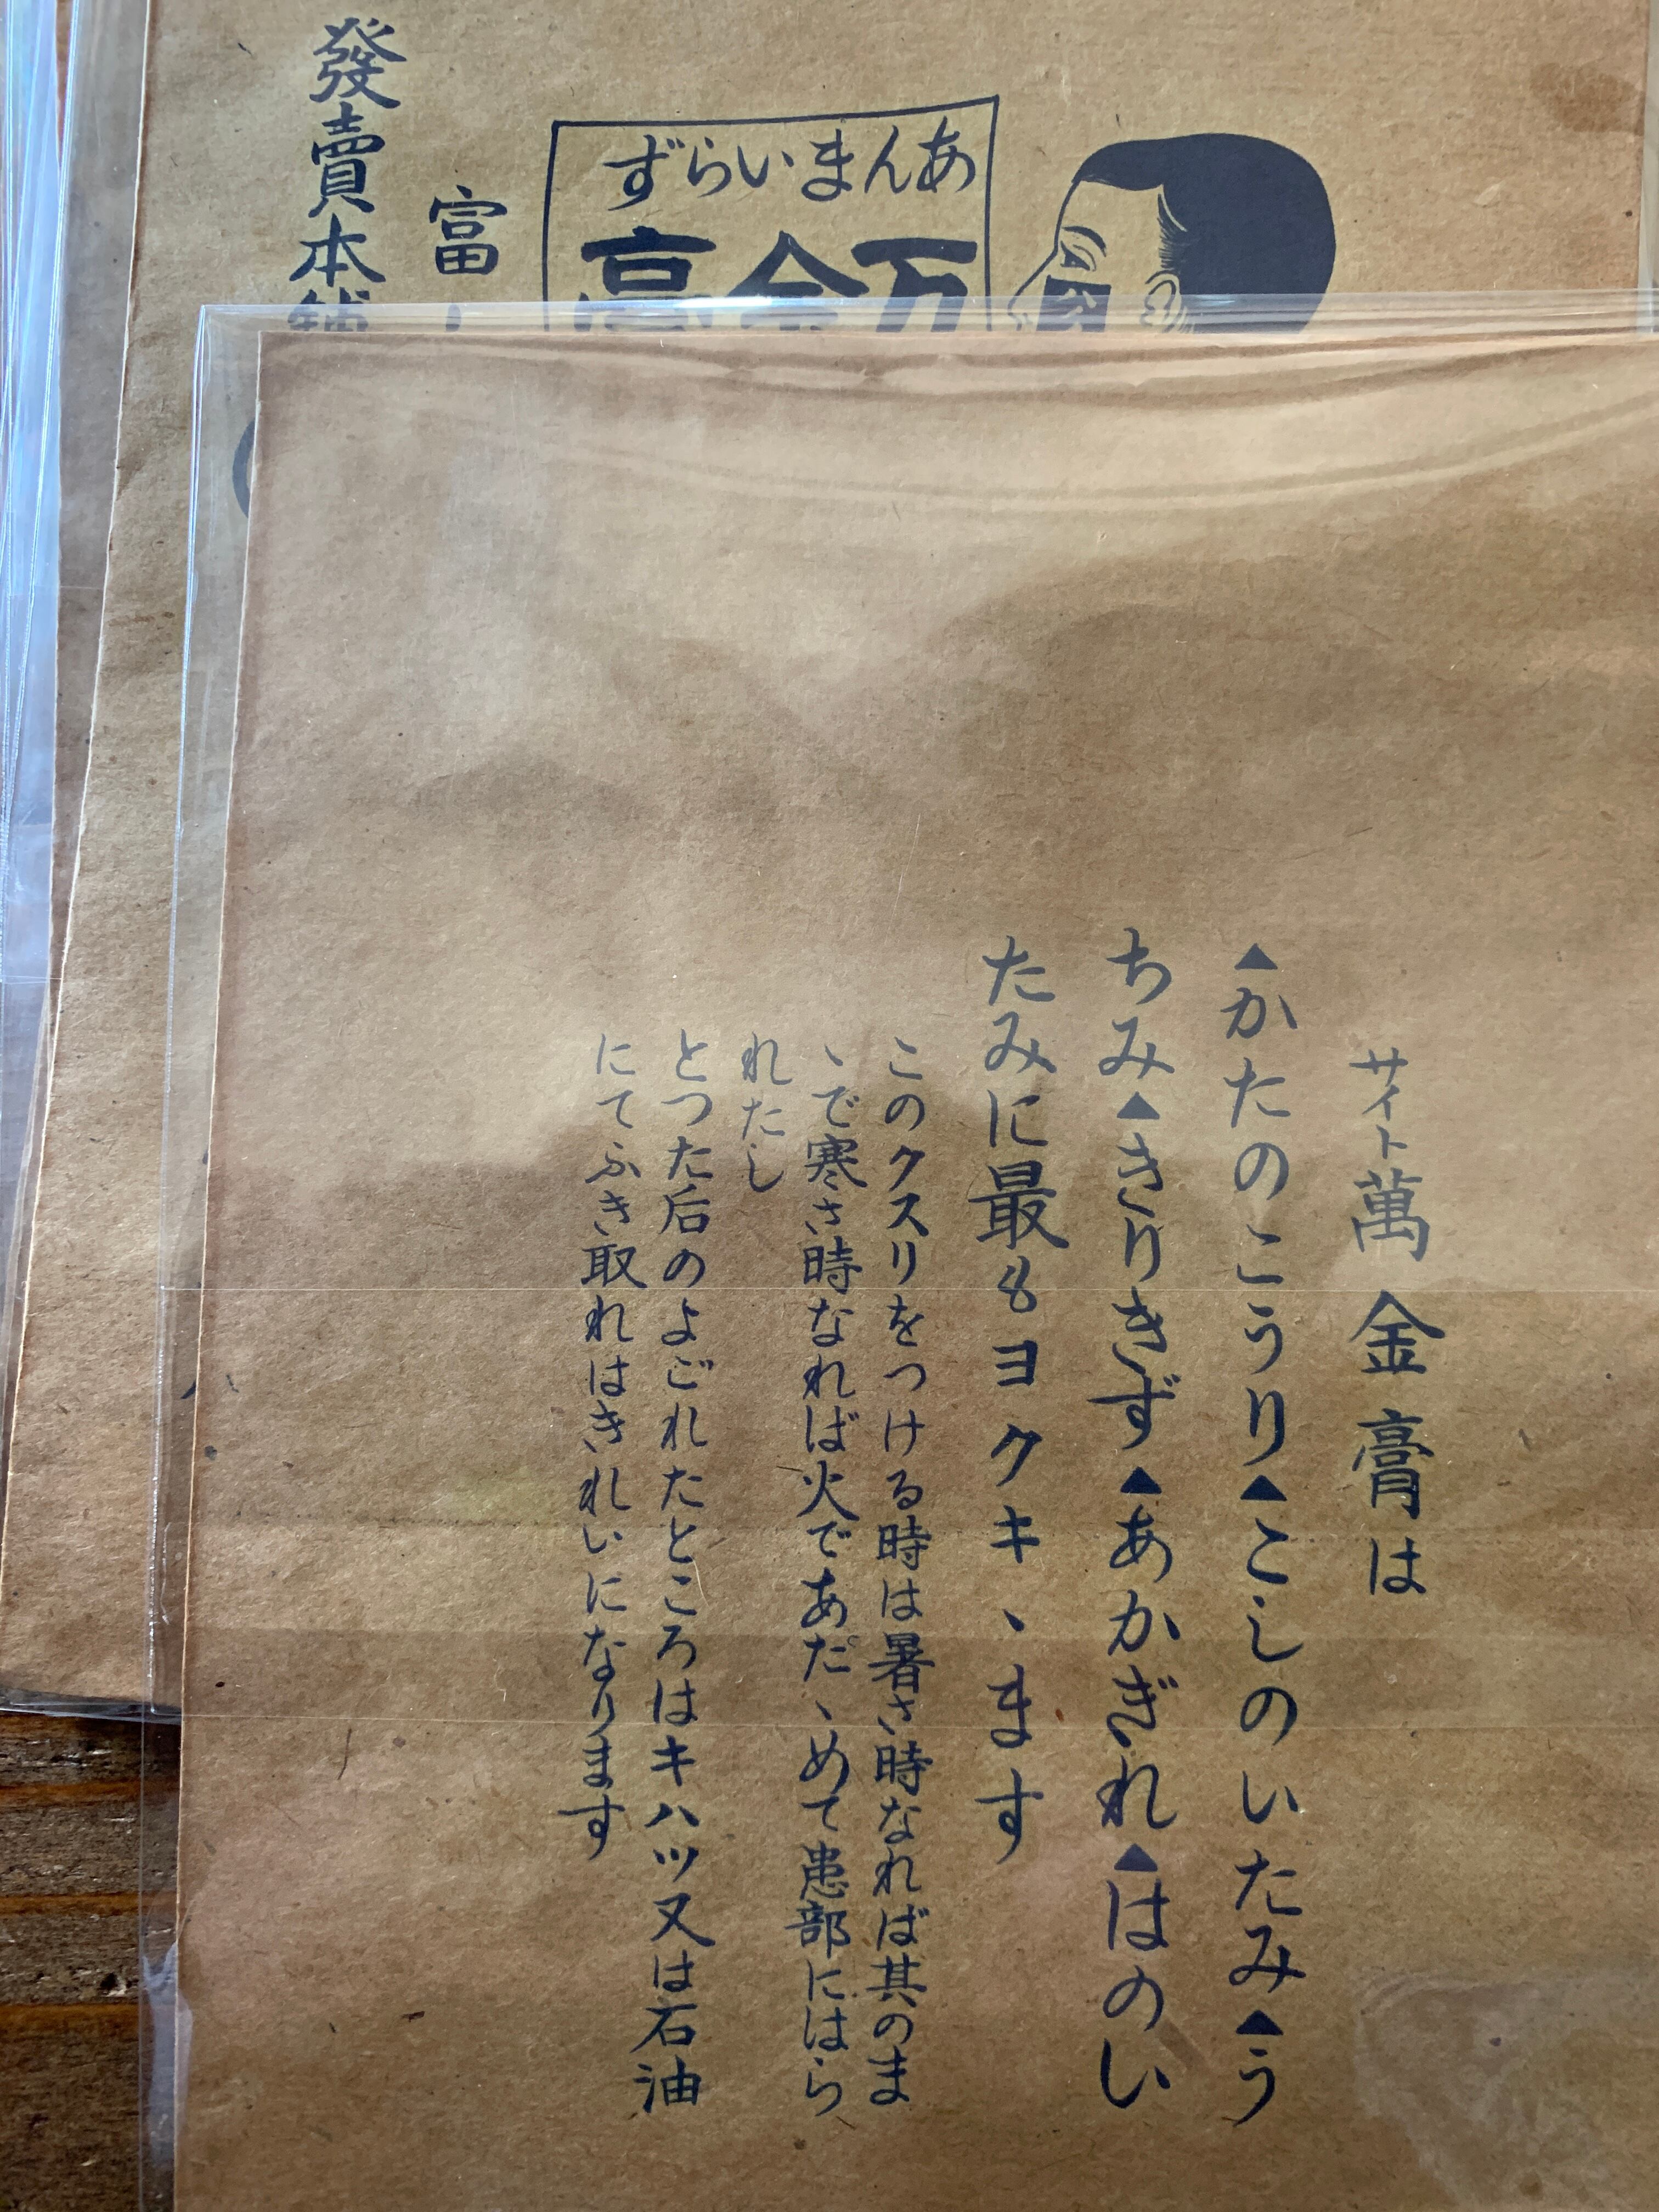 あんまいらず
万金膏
富
發賣本舗
サイト萬金膏は
▲かたのこうり▲こしのいたみ▲う
ちみ▲きりきず▲あかぎれ▲はのい
たみに最もヨクキヽます
このクスリをつける時は暑さ時なれば其のま
ヽで寒さ時なれば火であだヽめて患部にはら
れたし
とつた后のよごれたところはキハツ又は石油
にてふき取れはきれいになります